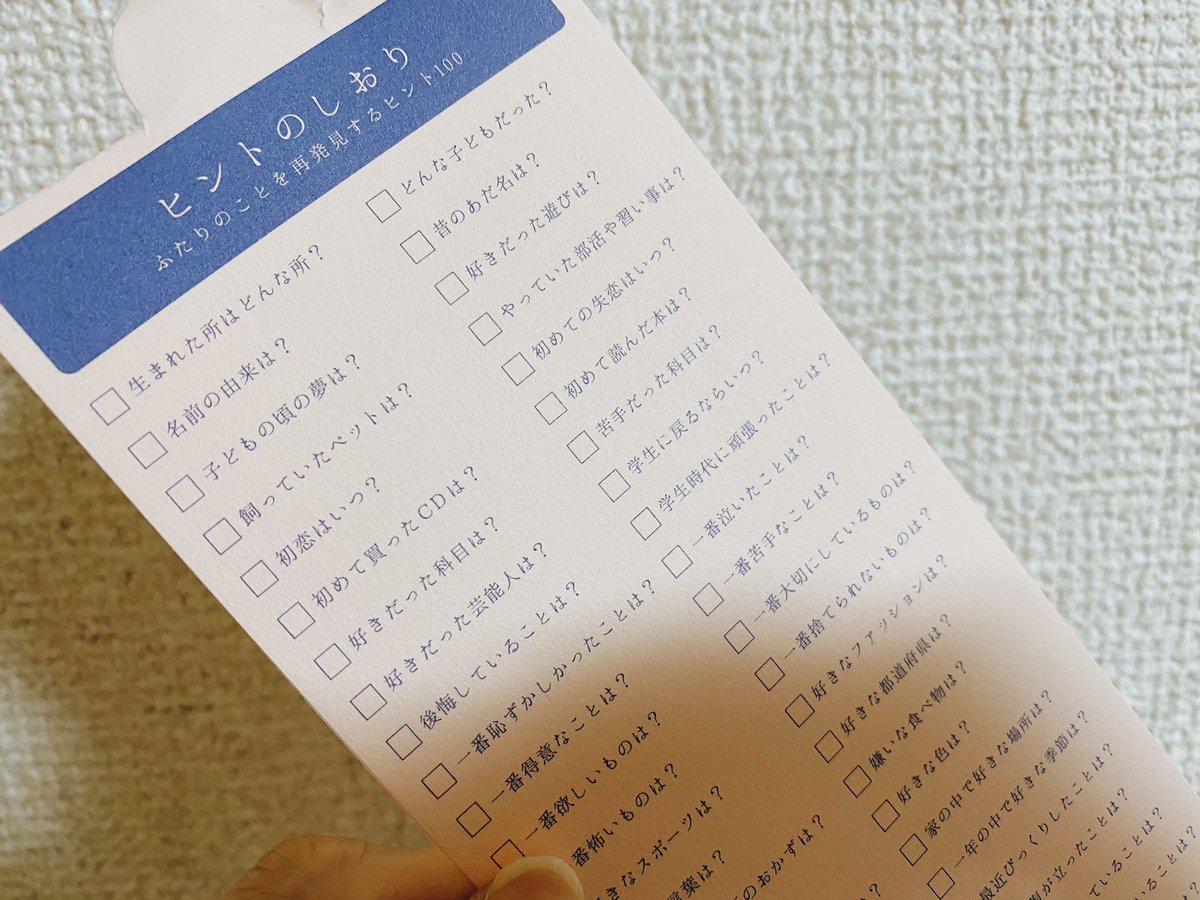 ヒントのしおり
ふたりのことを再発見するヒント100
□ 生まれた所はどんな所？
□ 名前の由来は？
□ 子どもの頃の夢は？
□ 飼っていたペットは？
□ 初恋はいつ？
□ 初めて買ったCDは？
□ 好きだった科目は？
□ 好きだった芸能人は？
□ 後悔していることは？
□ 一番恥ずかしかったことは？
□ 一番得意なことは？
□ 一番欲しいものは？
番怖いものは？
きなスポーツは？
言葉は？
のおかずは？
□ どんな子どもだった？
□ 昔のあだ名は？
□ 好きだった遊びは？
□ やっていた部活や習い事は？
□ 初めての失恋はいつ？
□ 初めて読んだ本は？
□ 苦手だった科目は？
□ 学生に戻るならいつ？
□ 学生時代に頑張ったことは？
□ 一番泣いたことは？
□ 一番苦手なことは？
□ 一番大切にしているものは？
□ 一番捨てられないものは？
□ 好きなファッションは？
□ 好きな都道府県は？
□ 嫌いな食べ物は？
□ 好きな色は？
□ 家の中で好きな場所は？
□ 一年の中で好きな季節は？
最近びっくりしたことは？
が立ったことは？
ていることは？
ことは？